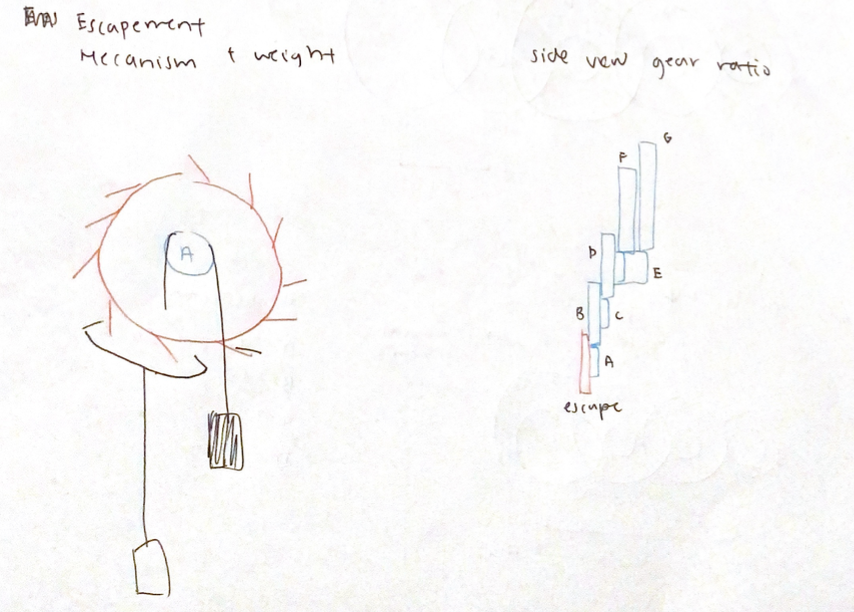 Escapement
Mecanism + weight
side view gear ratio
A
G
F
D
E
B
C
A
escape